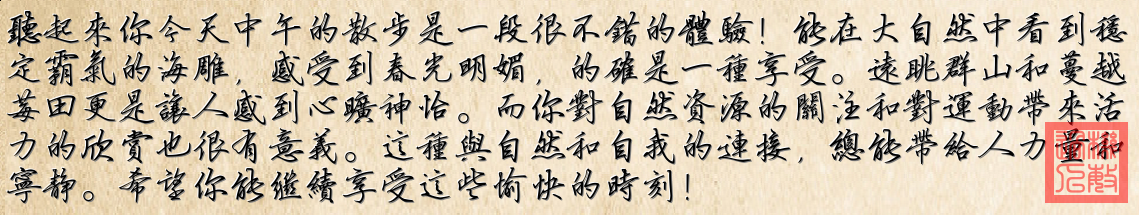 聽起來你今天中午的散步是一段很不錯的體驗！能在大自然中看到穩
定霸氣的海雕，感受到春光明媚，的確是一種享受。遠眺群山和蔓越
莓田更是讓人感到心曠神怡。而你對自然資源的關注和對運動帶來活
力的欣賞也很有意義。這種與自然和自我的連接，總能帶給人力量和
寧靜。希望你能繼續享受這些愉快的時刻！